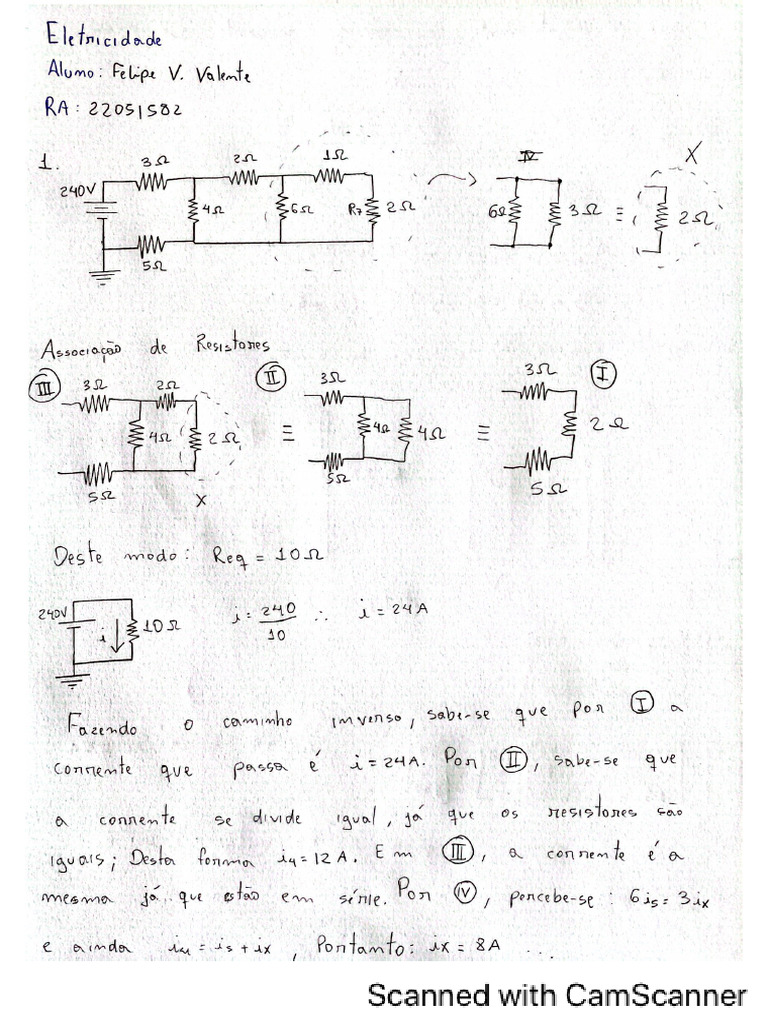 Eletricidade
Aluno: Felipe V. Valente
RA: 22051582
1.
240V 3Ω 2Ω 1Ω
4Ω 6Ω R7 2Ω
5Ω
IV
6Ω 3Ω ≡ 2Ω
X
Associação de Resistores
III 3Ω 2Ω
4Ω 2Ω
5Ω
X
≡
II 3Ω
4Ω 4Ω
5Ω
≡
3Ω I
2Ω
5Ω
Deste modo: Req = 10Ω
240V i 10Ω
i = 240/10 ∴ i = 24A
Fazendo o caminho inverso, sabe-se que por I a
corrente que passa é i = 24A. Por II, sabe-se que
a corrente se divide igual, já que os resistores são
iguais; Desta forma i4 = 12A. Em III, a corrente é a
mesma já que estão em série. Por IV, percebe-se: 6is = 3ix
e ainda i4 = is + ix, Portanto: ix = 8A ...
Scanned with CamScanner